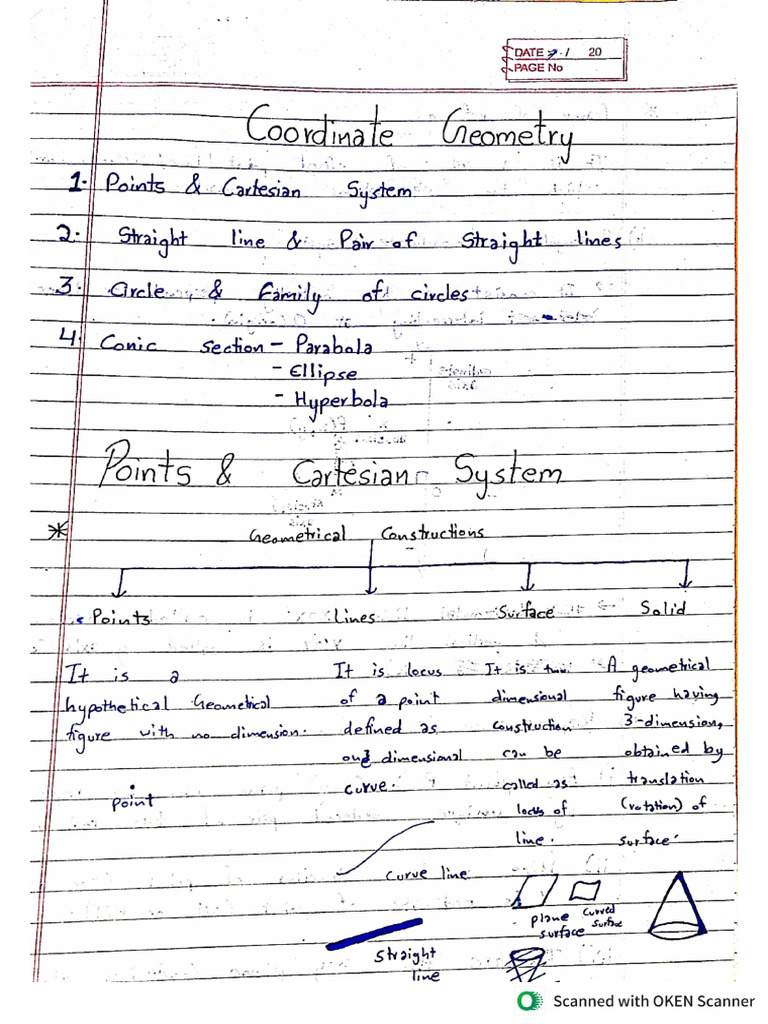 DATE / 20
PAGE No
Coordinate Geometry
1. Points & Cartesian System
2. Straight line & Pair of Straight lines
3. Circle & Family of circles
4 Conic section - Parabola
- Ellipse
- Hyperbola
Points & Cartesian System
* Geometrical Constructions
Points
Lines
Surface
Solid
It is a
hypothetical Geometrical
figure with no dimension.
point
It is locus
of a point
defined as
one dimensional
curve.
curve line
Straight
line
It is two
dimensional
construction
can be
called as
locus of
line.
plane
surface
curved
surface
A geometrical
figure having
3-dimension,
obtained by
translation
(rotation) of
surface.
Scanned with OKEN Scanner